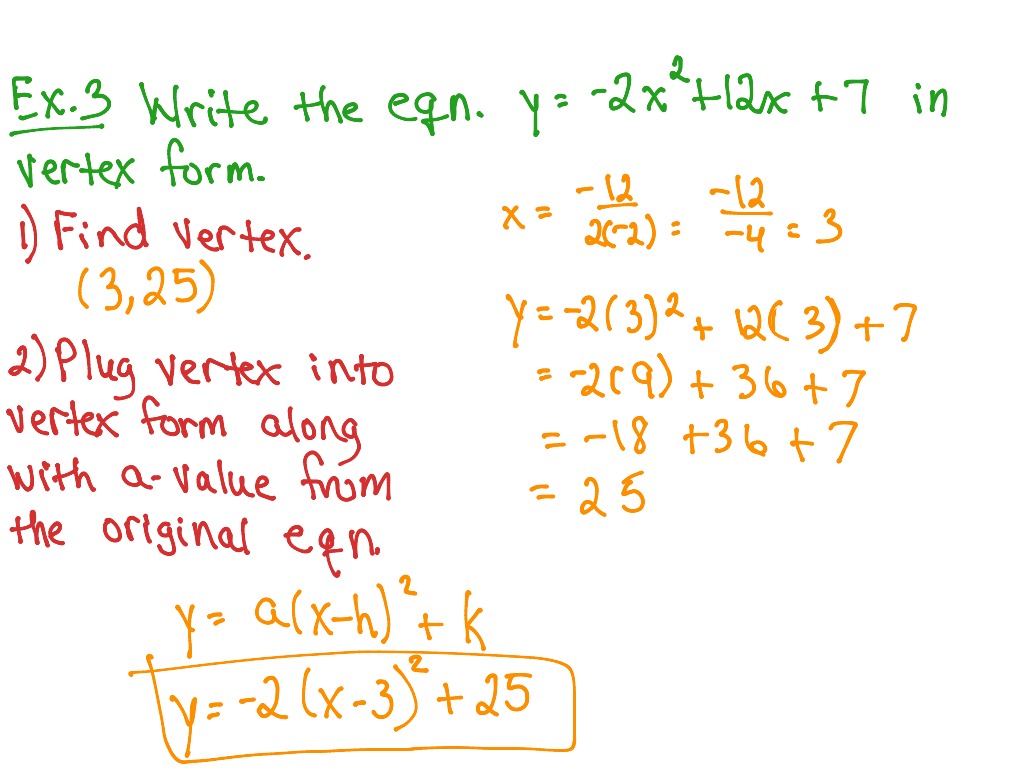 Ex.3 Write the eqn. y = -2x²+12x +7 in
vertex form.
1) Find vertex.
(3,25)
x = -12/2(-2) = -12/-4 = 3
y = -2(3)² + 12(3) + 7
= -2(9) + 36 + 7
= -18 +36 + 7
= 25
2) Plug vertex into
vertex form along
with a-value from
the original eqn.
y = a(x-h)² + k
y = -2(x-3)² + 25